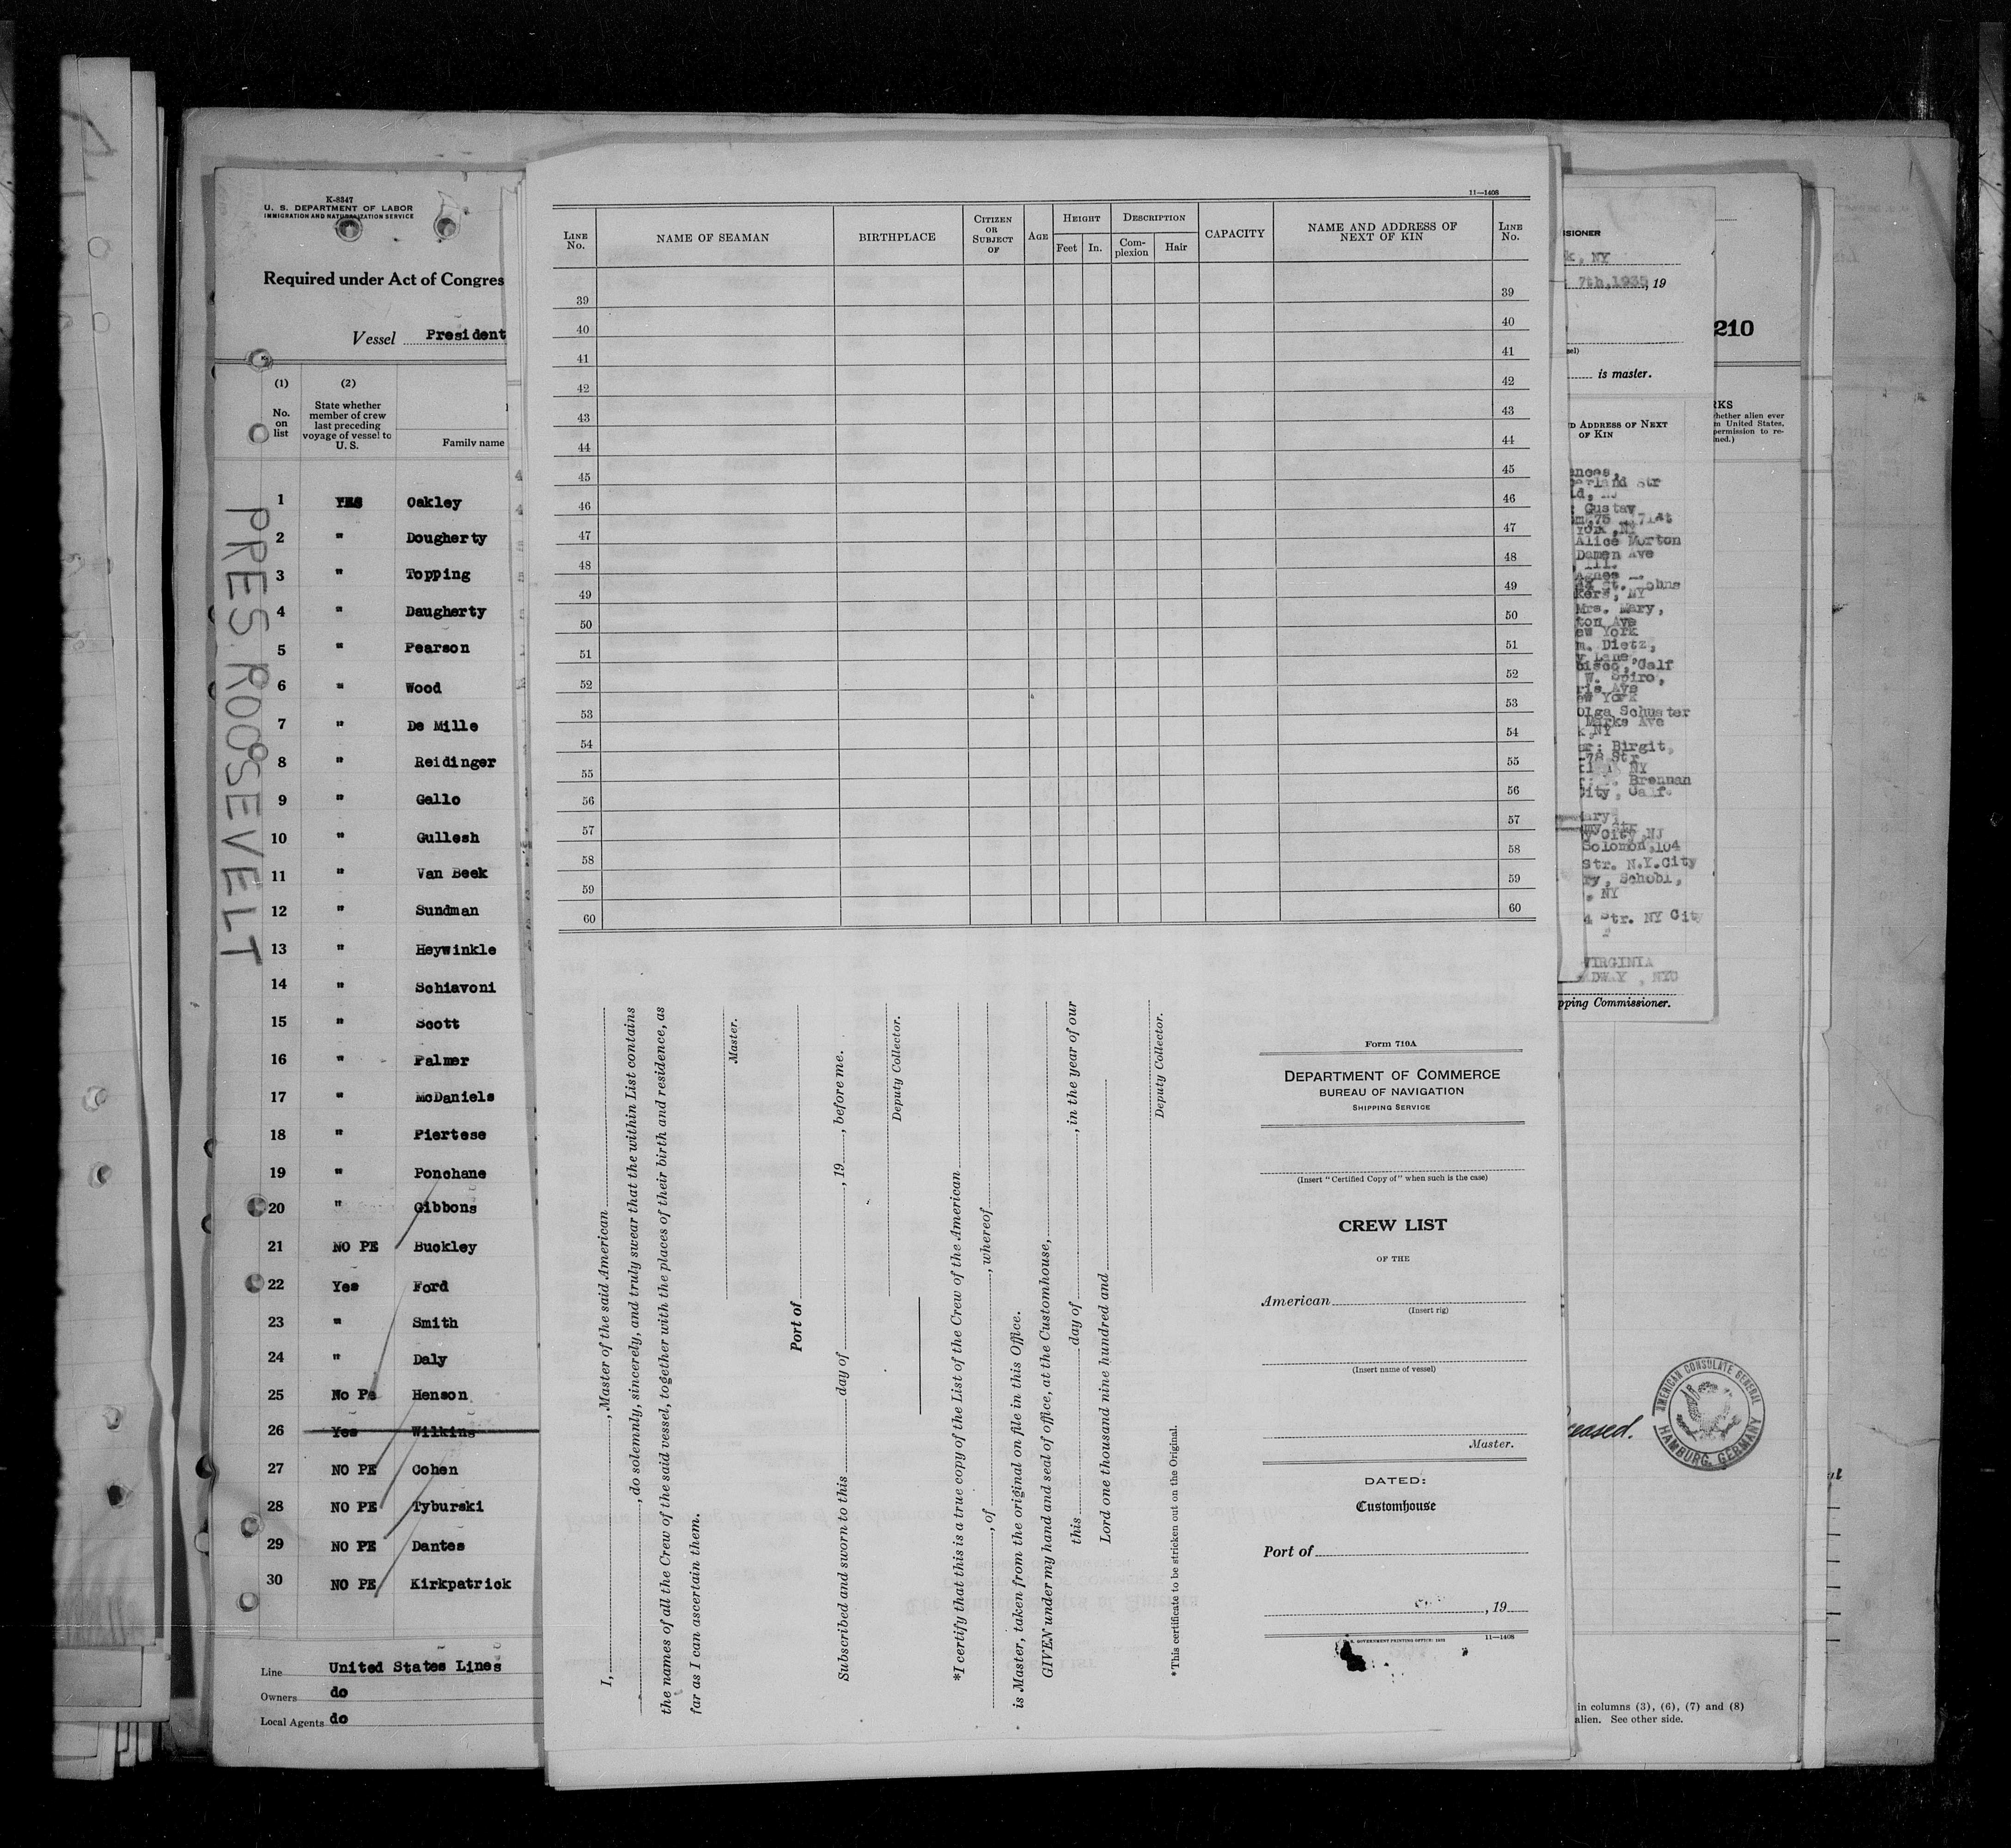 K-8347
U. S. DEPARTMENT OF LABOR
IMMIGRATION AND NATURALIZATION SERVICE
Required under Act of Congres
Vessel President
(1) (2)
No. on list
State whether member of crew last preceding voyage of vessel to U. S.
Family name
PRES. ROOSEVELT
1 YES Oakley
2 " Dougherty
3 " Topping
4 " Daugherty
5 " Pearson
6 " Wood
7 " De Mille
8 " Reidinger
9 " Gallo
10 " Gullesh
11 " Van Beek
12 " Sundman
13 " Heywinkle
14 " Schiavoni
15 " Scott
16 " Palmer
17 " McDaniels
18 " Piertese
19 " Ponchane
20 " Gibbons
21 NO PE Buckley
22 Yes Ford
23 " Smith
24 " Daly
25 No Pe Henson
26 Yes Wilkins
27 NO PE Cohen
28 NO PE Tyburski
29 NO PE Dantes
30 NO PE Kirkpatrick
Line United States Lines
Owners do
Local Agents do
11—1408
LINE No.
NAME OF SEAMAN
BIRTHPLACE
CITIZEN OR SUBJECT OF
AGE
HEIGHT
Feet In.
DESCRIPTION
Complexion Hair
CAPACITY
NAME AND ADDRESS OF NEXT OF KIN
LINE No.
39 39
40 40
41 41
42 42
43 43
44 44
45 45
46 46
47 47
48 48
49 49
50 50
51 51
52 52
53 53
54 54
55 55
56 56
57 57
58 58
59 59
60 60
I, , Master of the said American
, do solemnly, sincerely, and truly swear that the within List contains
the names of all the Crew of the said vessel, together with the places of their birth and residence, as
far as I can ascertain them.
Master.
Port of
Subscribed and sworn to this day of , 19 , before me.
Deputy Collector.
*I certify that this is a true copy of the List of the Crew of the American
, of , whereof
is Master, taken from the original on file in this Office.
GIVEN under my hand and seal of office, at the Customhouse,
this day of , in the year of our
Lord one thousand nine hundred and
Deputy Collector.
*This certificate to be stricken out on the Original.
Form 710A
DEPARTMENT OF COMMERCE
BUREAU OF NAVIGATION
SHIPPING SERVICE
(Insert "Certified Copy of" when such is the case)
CREW LIST
OF THE
American
(Insert rig)
(Insert name of vessel)
Master.
DATED:
Customhouse
Port of
, 19
GOVERNMENT PRINTING OFFICE 11—1408
SIONER
k, NY
7th,1935, 19
sel)
is master.
D ADDRESS OF NEXT
OF KIN
ences,
erland Str
Gustav
York, NY
Alice Morton
Damen Ave
, Ill.
Agnes
St. Johns
kers, NY
Mrs. Mary,
ton Ave
ew York
m. Dietz,
y Lane,
isco, Calf
W. Spiro,
ris Ave
ew York
Olga Schuster
Marks Ave
k,NY
or: Birgit,
78 Str
NY
Brennan
City, Calf.
ary
y City, NJ
Solomon,104
Str. N.Y.City
ry, Schobl,
, NY
4 Str. NY City
VIRGINIA
DWAY, NYC
pping Commissioner.
210
RKS
hether alien ever
m United States,
permission to re-
ned.)
eased.
AMERICAN CONSULATE GENERAL
HAMBURG, GERMANY
in columns (3), (6), (7) and (8)
alien. See other side.